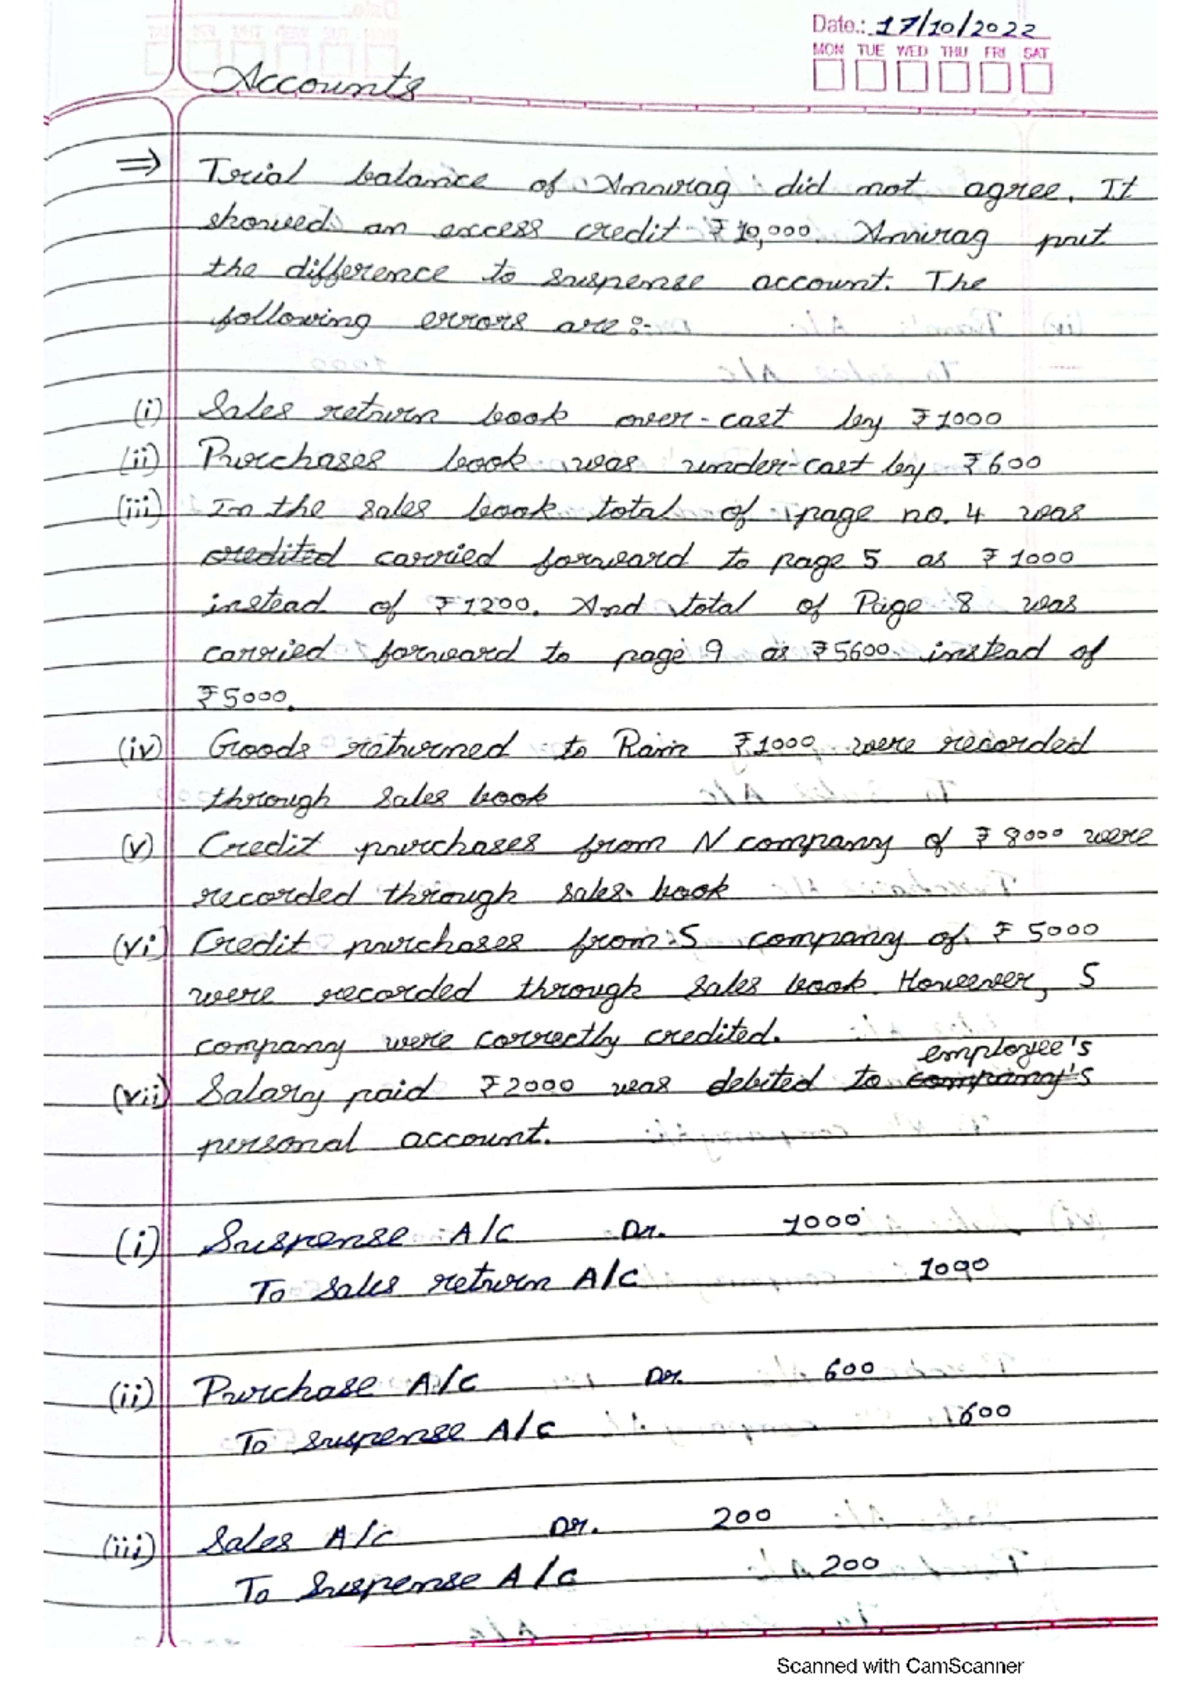 Date.: 17/10/2022
MON TUE WED THU FRI SAT
Accounts
⇒ Trial balance of Anurag did not agree. It
showed an excess credit ₹10,000 Anurag put
the difference to suspense account. The
following errors are :-
(i) Sales return book over-cast by ₹1000
(ii) Purchases book was under-cast by ₹600
(iii) In the sales book total of page no. 4 was
credited carried forward to page 5 as ₹1000
instead of ₹1200. And total of Page 8 was
carried forward to page 9 as ₹5600 instead of
₹5000.
(iv) Goods returned to Ram ₹1000 were recorded
through sales book
(v) Credit purchases from N company of ₹8000 were
recorded through sales book
(vi) Credit purchases from S company of ₹5000
were recorded through sales book. However, S
company were correctly credited.
employee's
(vii) Salary paid ₹2000 was debited to company's
personal account.
(i) Suspense A/c Dr. 1000
To Sales return A/c 1000
(ii) Purchase A/c Dr. 600
To Suspense A/c 600
(iii) Sales A/c Dr. 200
To Suspense A/c 200
Scanned with CamScanner